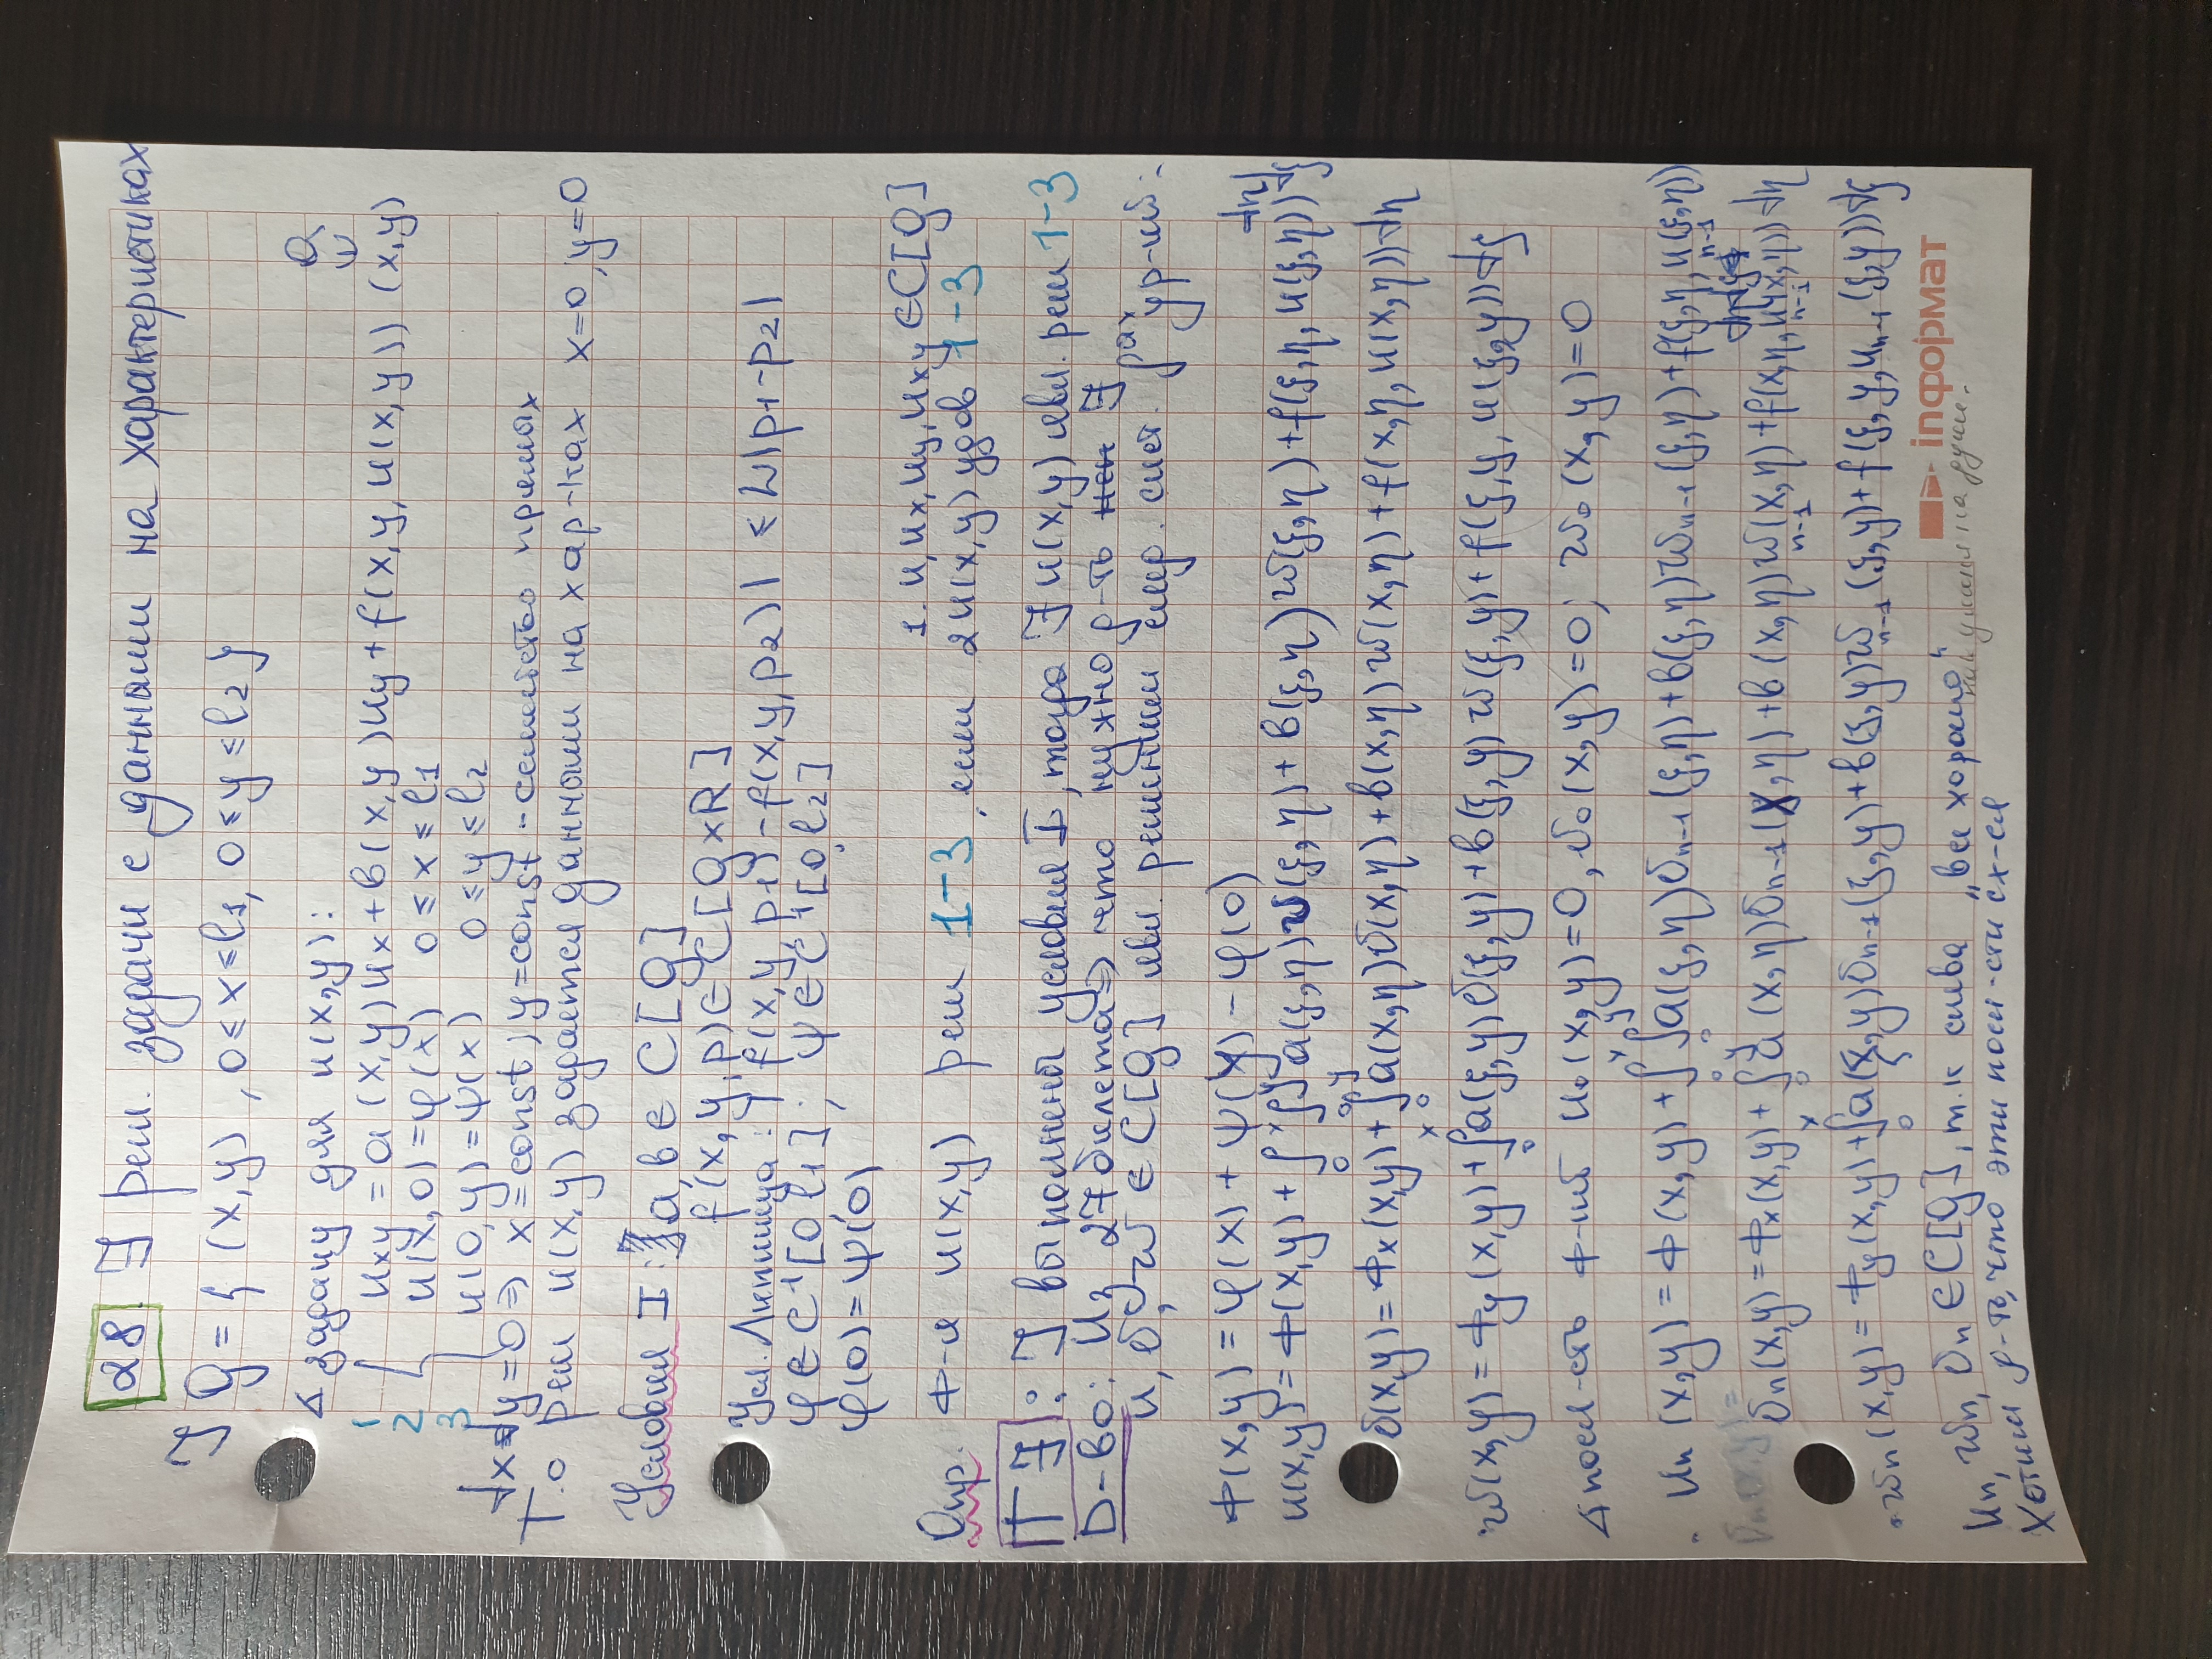 28. ∃ реш. задачи с данными на характеристиках
∃ Q = { (x,y), 0≤x≤l₁, 0≤y≤l₂ }
∆ задачу для u(x,y):
1 uxy = a(x,y)ux + b(x,y)uy + f(x,y,u(x,y)) (x,y) ∈ Q
2 u(x,0)=φ(x) 0≤x≤l₁
3 u(0,y)=ψ(x) 0≤y≤l₂
dxdy=0 ⇒ x=const, y=const - семейство прямых
Т.о реш u(x,y) задается данными на хар-ках x=0, y=0
Условия I: a, b ∈ C[Q]
f(x,y,p) ∈ C[Q×R]
Усл. Липшица: |f(x,y,p₁)-f(x,y,p₂)| ≤ L|p₁-p₂|
φ∈C¹[0,l₁]; ψ∈C¹[0,l₂]
φ(0)=ψ(0)
Опр. ф-я u(x,y) реш 1-3, если 1. u,ux,uy,uxy∈C[Q]
2 u(x,y) удов 1-3
Т ∃: ∃ выполнены условия I, тогда ∃ u(x,y) явл. реш 1-3
D-во: Из 27 билета ⇒ что нужно д-ть ∃
u, v, w ∈ C[Q] явл. решениями след. сист. ур-ий:
Ф(x,y)=φ(x)+ψ(y)-φ(0)
u(x,y)=Ф(x,y)+∫₀ˣ∫₀ʸ(a(ξ,η)v(ξ,η)+b(ξ,η)w(ξ,η)+f(ξ,η,u(ξ,η)))dηdξ
v(x,y)=Фx(x,y)+∫₀ʸ(a(x,η)v(x,η)+b(x,η)w(x,η)+f(x,η,u(x,η)))dη
w(x,y)=Фy(x,y)+∫₀ˣ(a(ξ,y)v(ξ,y)+b(ξ,y)w(ξ,y)+f(ξ,y,u(ξ,y)))dξ
∆ посл-сть ф-ий u₀(x,y)=0, v₀(x,y)=0; w₀(x,y)=0
· un(x,y)=Ф(x,y)+∫₀ˣ∫₀ʸ(a(ξ,η)vn-1(ξ,η)+b(ξ,η)wn-1(ξ,η)+f(ξ,η,un-1(ξ,η)))dηdξ
vn(x,y)=Фx(x,y)+∫₀ʸ(a(x,η)vn-1(x,η)+b(x,η)wn-1(x,η)+f(x,η,un-1(x,η)))dη
· wn(x,y)=Фy(x,y)+∫₀ˣ(a(ξ,y)vn-1(ξ,y)+b(ξ,y)wn-1(ξ,y)+f(ξ,y,un-1(ξ,y)))dξ
un, wn, vn ∈C[Q], т.к слева "все хорошо"
на душе.
Хотим д-ть, что эти посл-сти сх-ся
информат